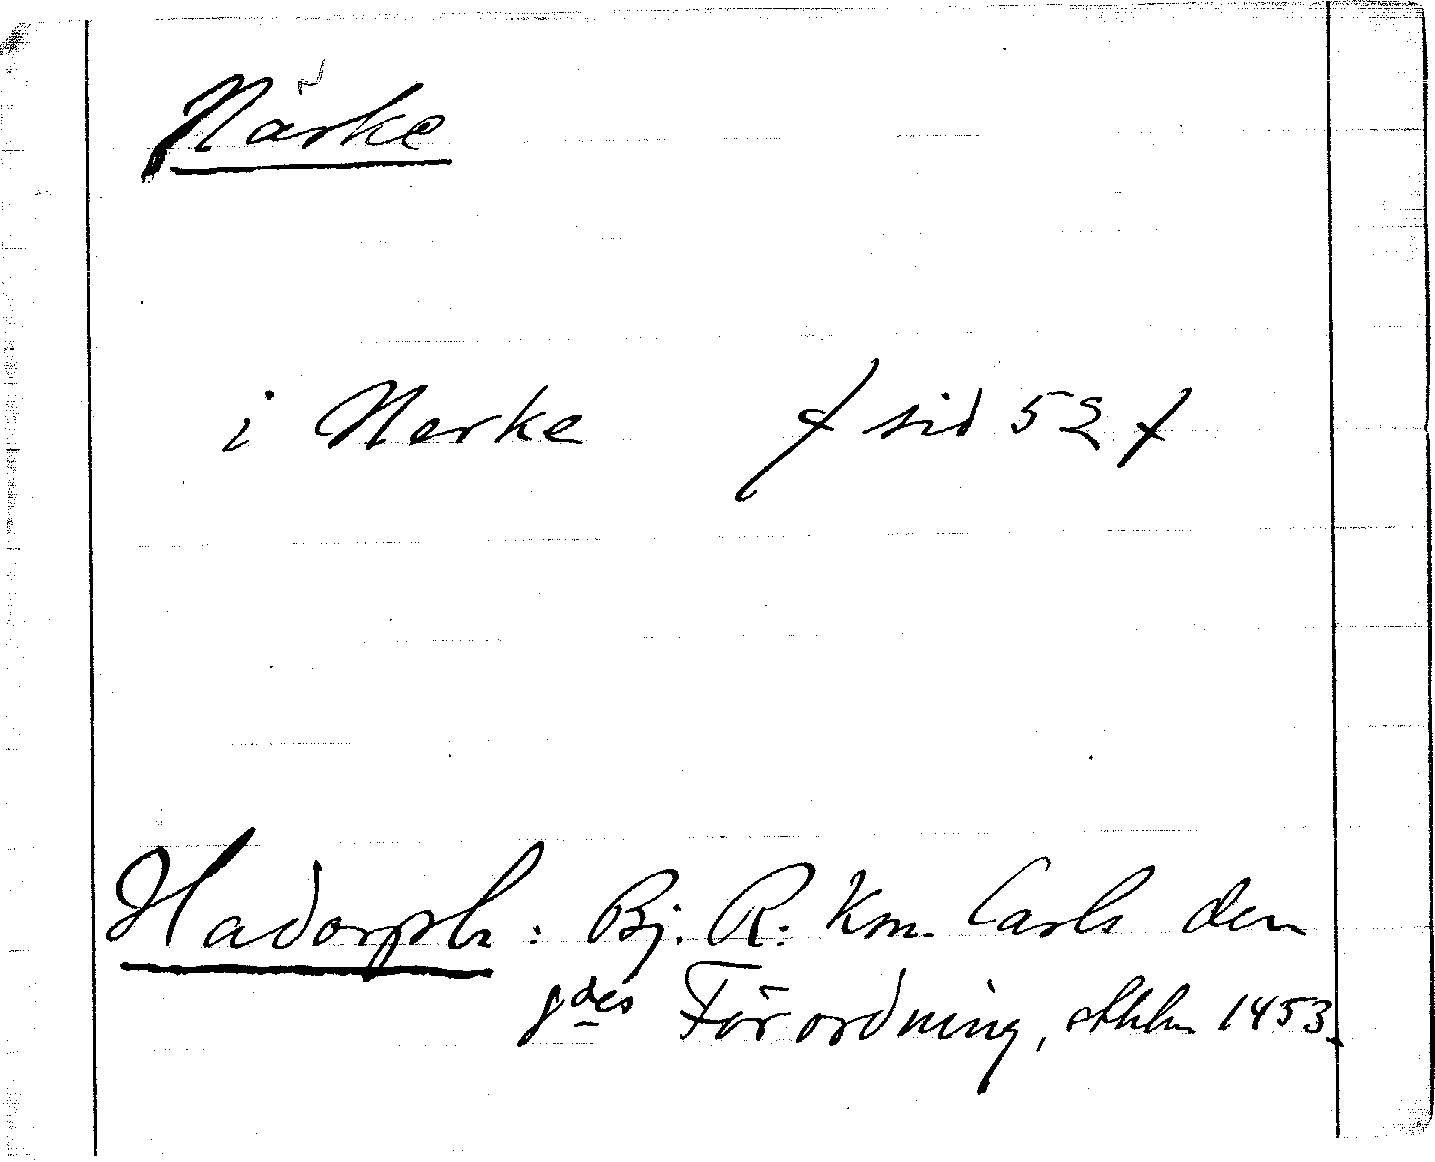 Närke
i Nerke f sid 52 f
Hadorph: Bj. R. Kon. Carls den
gdes Förordning, Sthlm 1453.